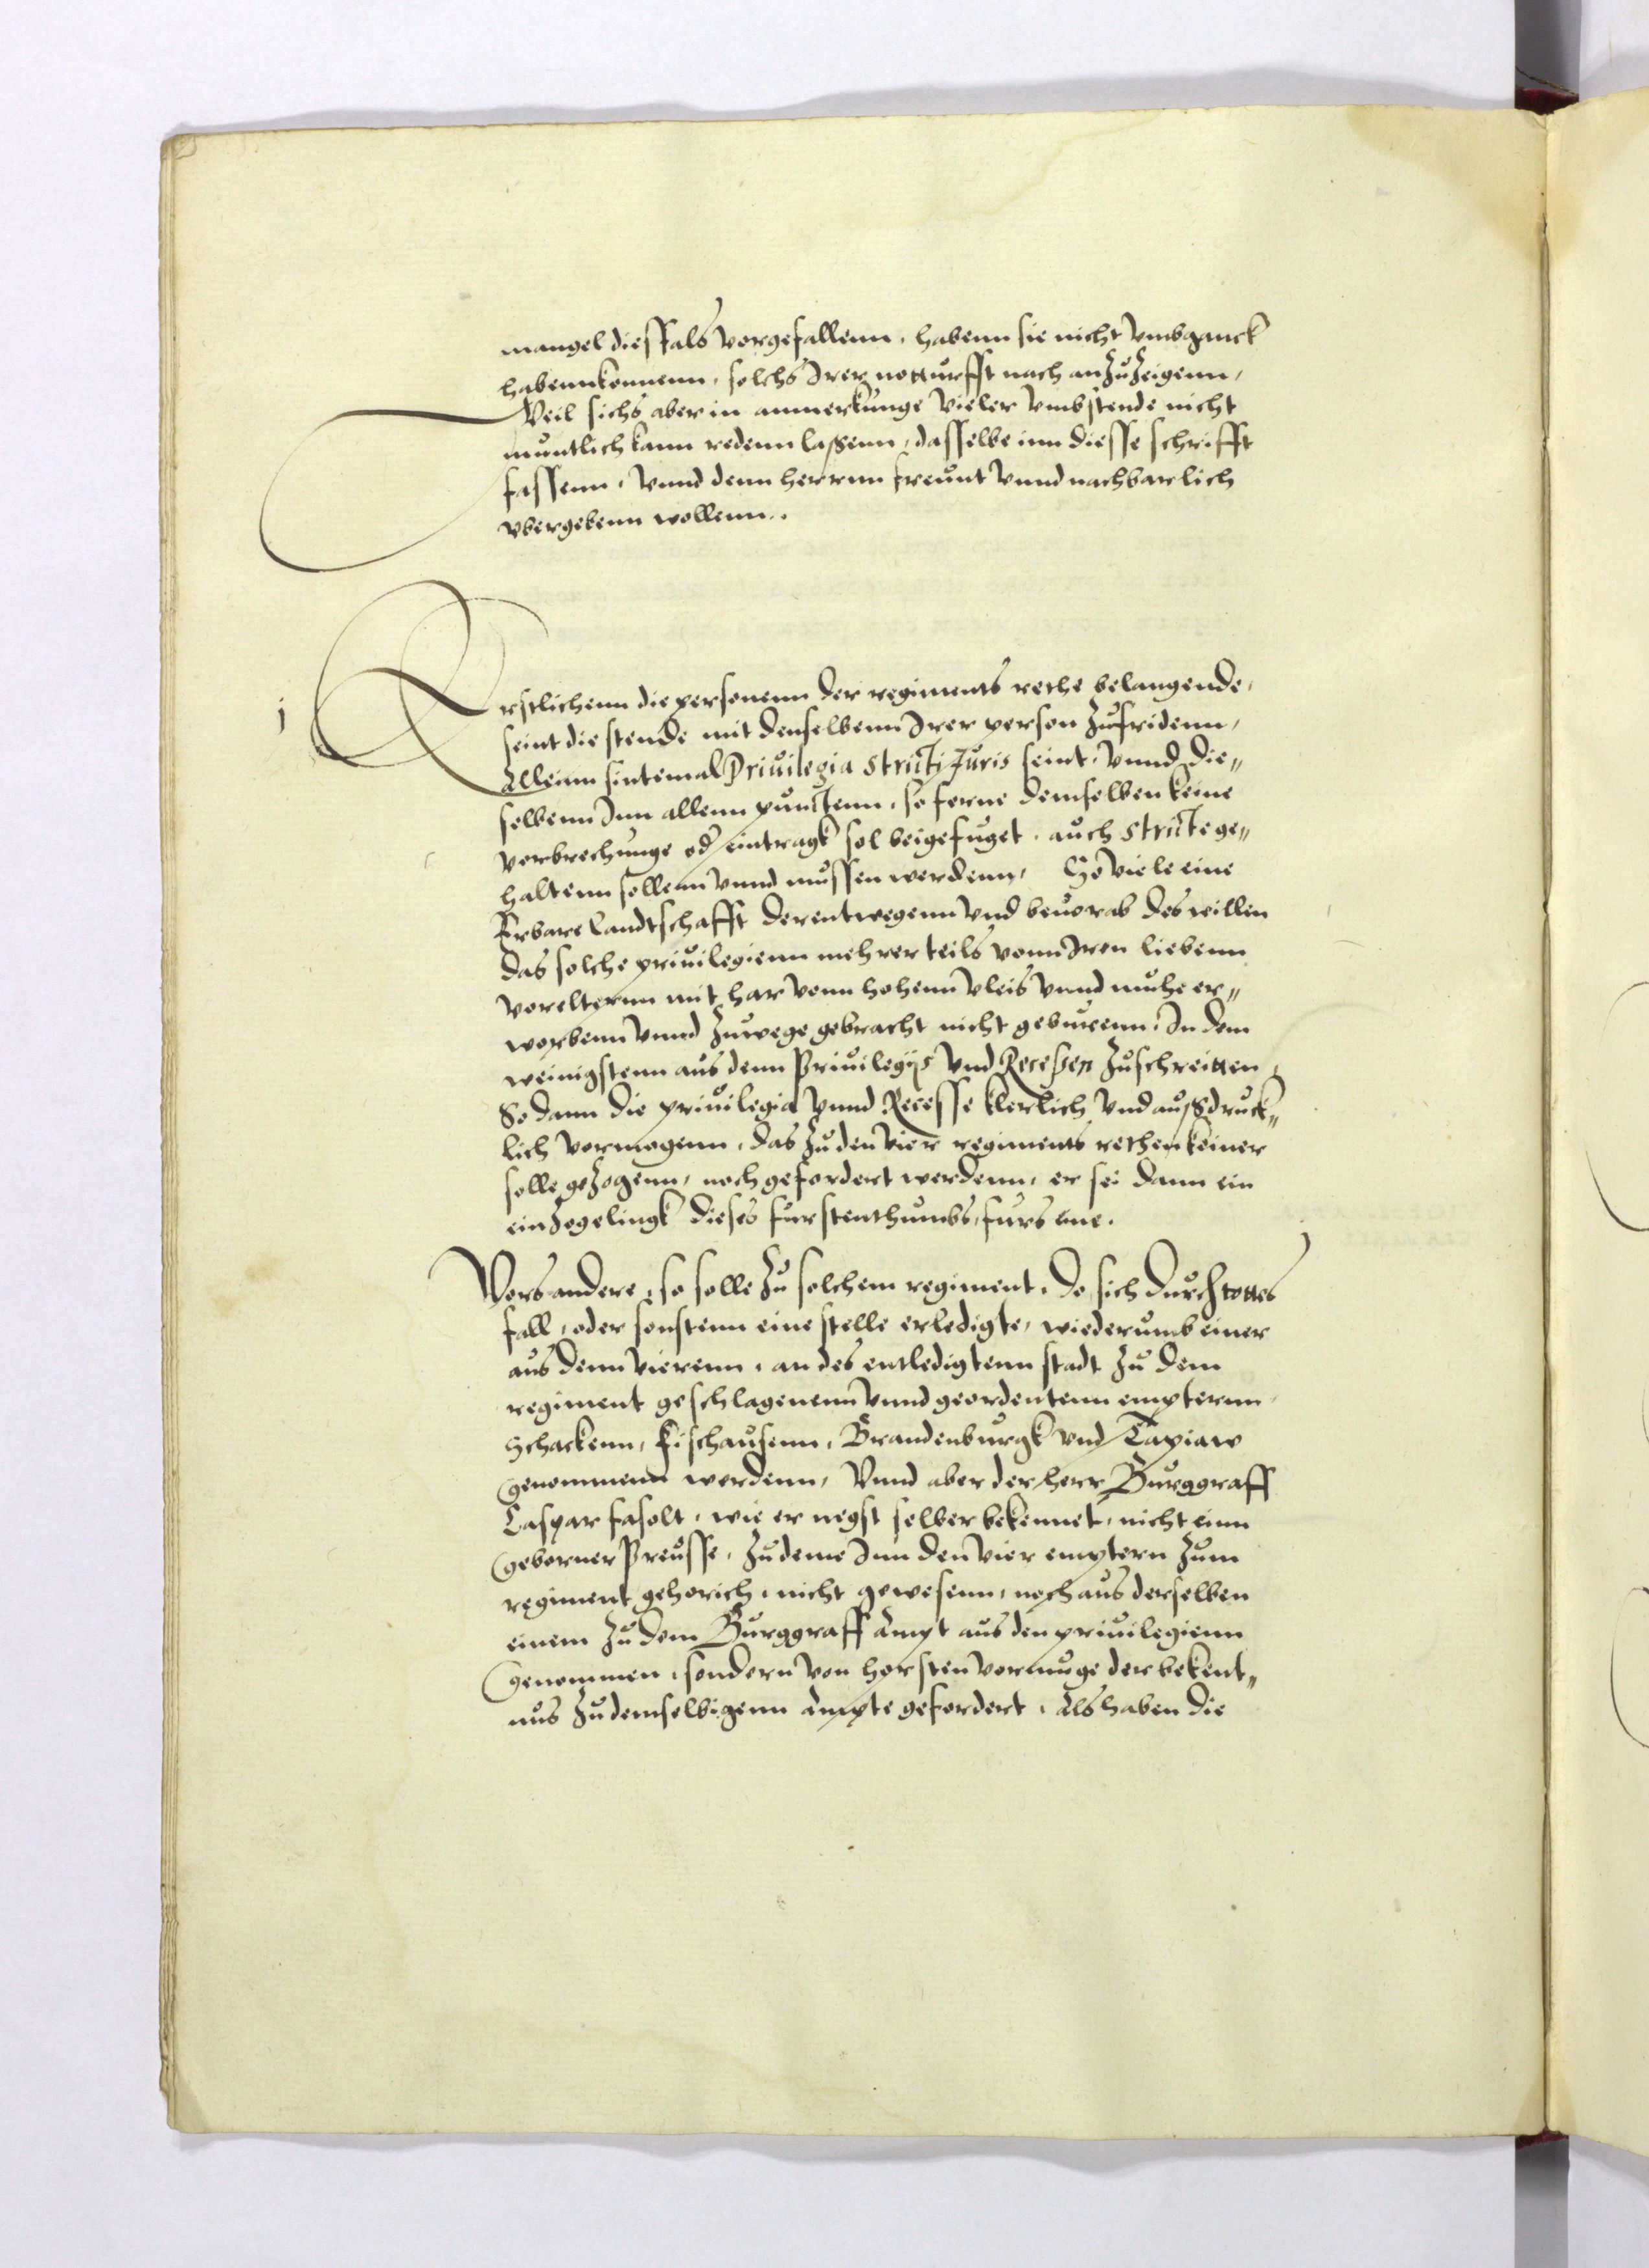 mangel diesfals vorgefallenn, habenn sie nicht vmbganck
habenn konnenn, solchs Irer notturfft nach anzuzeigenn,
Weil sichs aber in anmerkunge vieler vmbstende nicht
muntlich kann redenn laßenn, dasselbe inn diesse schrifft
fassenn, vnnd denn herrnn freunt vnnd nachbarlich
vbergebenn wollenn.
j
Erstlichenn die personenn der regiments rethe belangende,
seint die stende mit denselbenn Irer person zufridenn,
Alleinn sintemal Priuilegia stricti Juris seint, vnnd die„
selbenn Inn allenn punctenn, so ferne demselben keine
vorbrechunge od eintragk sol beigefuget, auch stricte ge„
haltenn sollenn vnnd mussen werdenn, So viele eine
Erbare Landtschafft derentwegenn vnd beuorab des willen
das solche priuilegienn mehrer teils vonn Iren liebenn
vorelternn mit har vonn hohenn vleis vnnd muhe er„
worbenn vnnd zuwege gebracht nicht geburenn, In dem
weinigstenn aus denn Priuilegijs vnd Recessen zuschreitten,
So dann die priuilegia vnnd Recesse klerlich vnd außdruck„
lich vormogenn, das zu den vier regiments rethen keiner
solle gezogenn, noch gefordert werdenn, er sei dann ein
einzogelingk dieses furstenthumbs, furs eine.
Vors andere, so solle zu solchem regiment, do sich durch tottes
fall, oder sonstenn eine stelle erledigte, wiederumb einer
aus denn vierenn, an des entledigtenn stadt zu dem
regiment geschlagenenn vnnd geordentenn empternn,
Schackenn, Fischausenn, Brandenburgk vnd Tapiaw
genommenn werdenn, Vnnd aber der herr Burggraff
Caspar fasolt, wie er negst selber bekennet, nicht einn
geborner Preusse, zudeme Inn den vier emptern zum
regiment gehorich, nicht gewesenn, noch aus derselben
einem zu dem Burggraff Ampt aus den priuilegienn
genommen, sondern von horsten vormuge der bekent„
nus zu demselbigenn Ampte gefordert, Als haben die